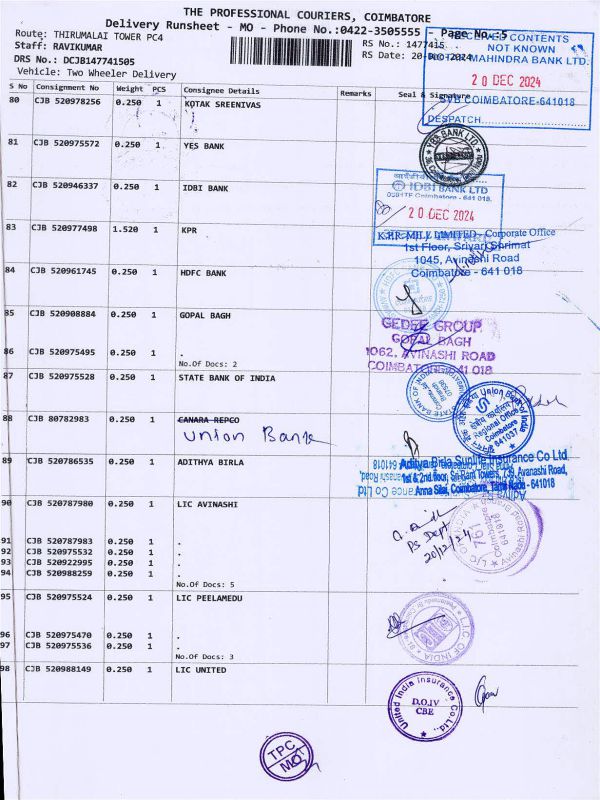 THE PROFESSIONAL COURIERS, COIMBATORE
Delivery Runsheet - MO - Phone No.:0422-3505555 - Page No.:5
Route: THIRUMALAI TOWER PC4
RS No.: 1477415
Staff: RAVIKUMAR
RS Date: 20-Dec-2024
DRS No.: DCJB147741505
Vehicle: Two Wheeler Delivery
RECEIVED CONTENTS
NOT KNOWN
KOTAK MAHINDRA BANK LTD.
20 DEC 2024
SVB COIMBATORE-641018
DESPATCH
S No Consignment No Weight PCS Consignee Details Remarks Seal & Signature
80 CJB 520978256 0.250 1 KOTAK SREENIVAS
81 CJB 520975572 0.250 1 YES BANK
YES BANK LTD.
82 CJB 520946337 0.250 1 IDBI BANK
IDBI BANK LTD
Coimbatore - 641 018.
20 DEC 2024
83 CJB 520977498 1.520 1 KPR
K.P.R. MILL LIMITED - Corporate Office
1st Floor, Srivari Shrimat
1045, Avinashi Road
Coimbatore - 641 018
84 CJB 520961745 0.250 1 HDFC BANK
85 CJB 520908884 0.250 1 GOPAL BAGH
GEDEE GROUP
GOPAL BAGH
1062, AVINASHI ROAD
COIMBATORE-641 018
86 CJB 520975495 0.250 1 .
No.Of Docs: 2
87 CJB 520975528 0.250 1 STATE BANK OF INDIA
STATE BANK OF INDIA
88 CJB 80782983 0.250 1 CANARA REPCO
Union Bank
Union Bank of India
Regional Office
Coimbatore
641037
89 CJB 520786535 0.250 1 ADITHYA BIRLA
Aditya Birla Sunlife Insurance Co Ltd
1st & 2nd floor, Sri Bant Towers, 739, Avanashi Road,
Anna Silai, Coimbatore, Tamil Nade - 641018
90 CJB 520787980 0.250 1 LIC AVINASHI
PS Dept
20/12/24
761
Coimbatore
641018
91 CJB 520787983 0.250 1 .
92 CJB 520975532 0.250 1 .
93 CJB 520922995 0.250 1 .
94 CJB 520988259 0.250 1 .
No.Of Docs: 5
95 CJB 520975524 0.250 1 LIC PEELAMEDU
L.I.C. OF INDIA
96 CJB 520975470 0.250 1 .
97 CJB 520975536 0.250 1 .
No.Of Docs: 3
98 CJB 520988149 0.250 1 LIC UNITED
United India Insurance Co.Ltd.
D.O.IV
CBE
TPC
MO